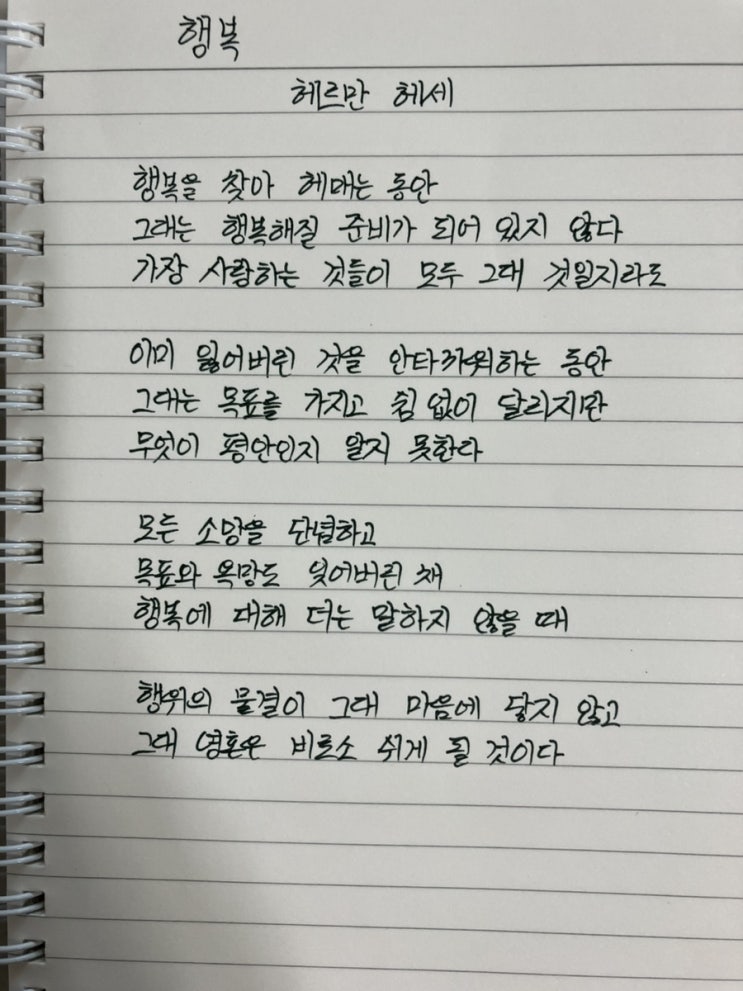 행복
헤르만 헤세
행복을 찾아 헤매는 동안
그대는 행복해질 준비가 되어 있지 않다
가장 사랑하는 것들이 모두 그대 것일지라도
이미 잃어버린 것을 안타까워하는 동안
그대는 목표를 가지고 쉼 없이 달리지만
무엇이 평안인지 알지 못한다
모든 소망을 단념하고
목표와 욕망도 잊어버린 채
행복에 대해 더는 말하지 않을 때
행위의 물결이 그대 마음에 닿지 않고
그대 영혼은 비로소 쉬게 될 것이다